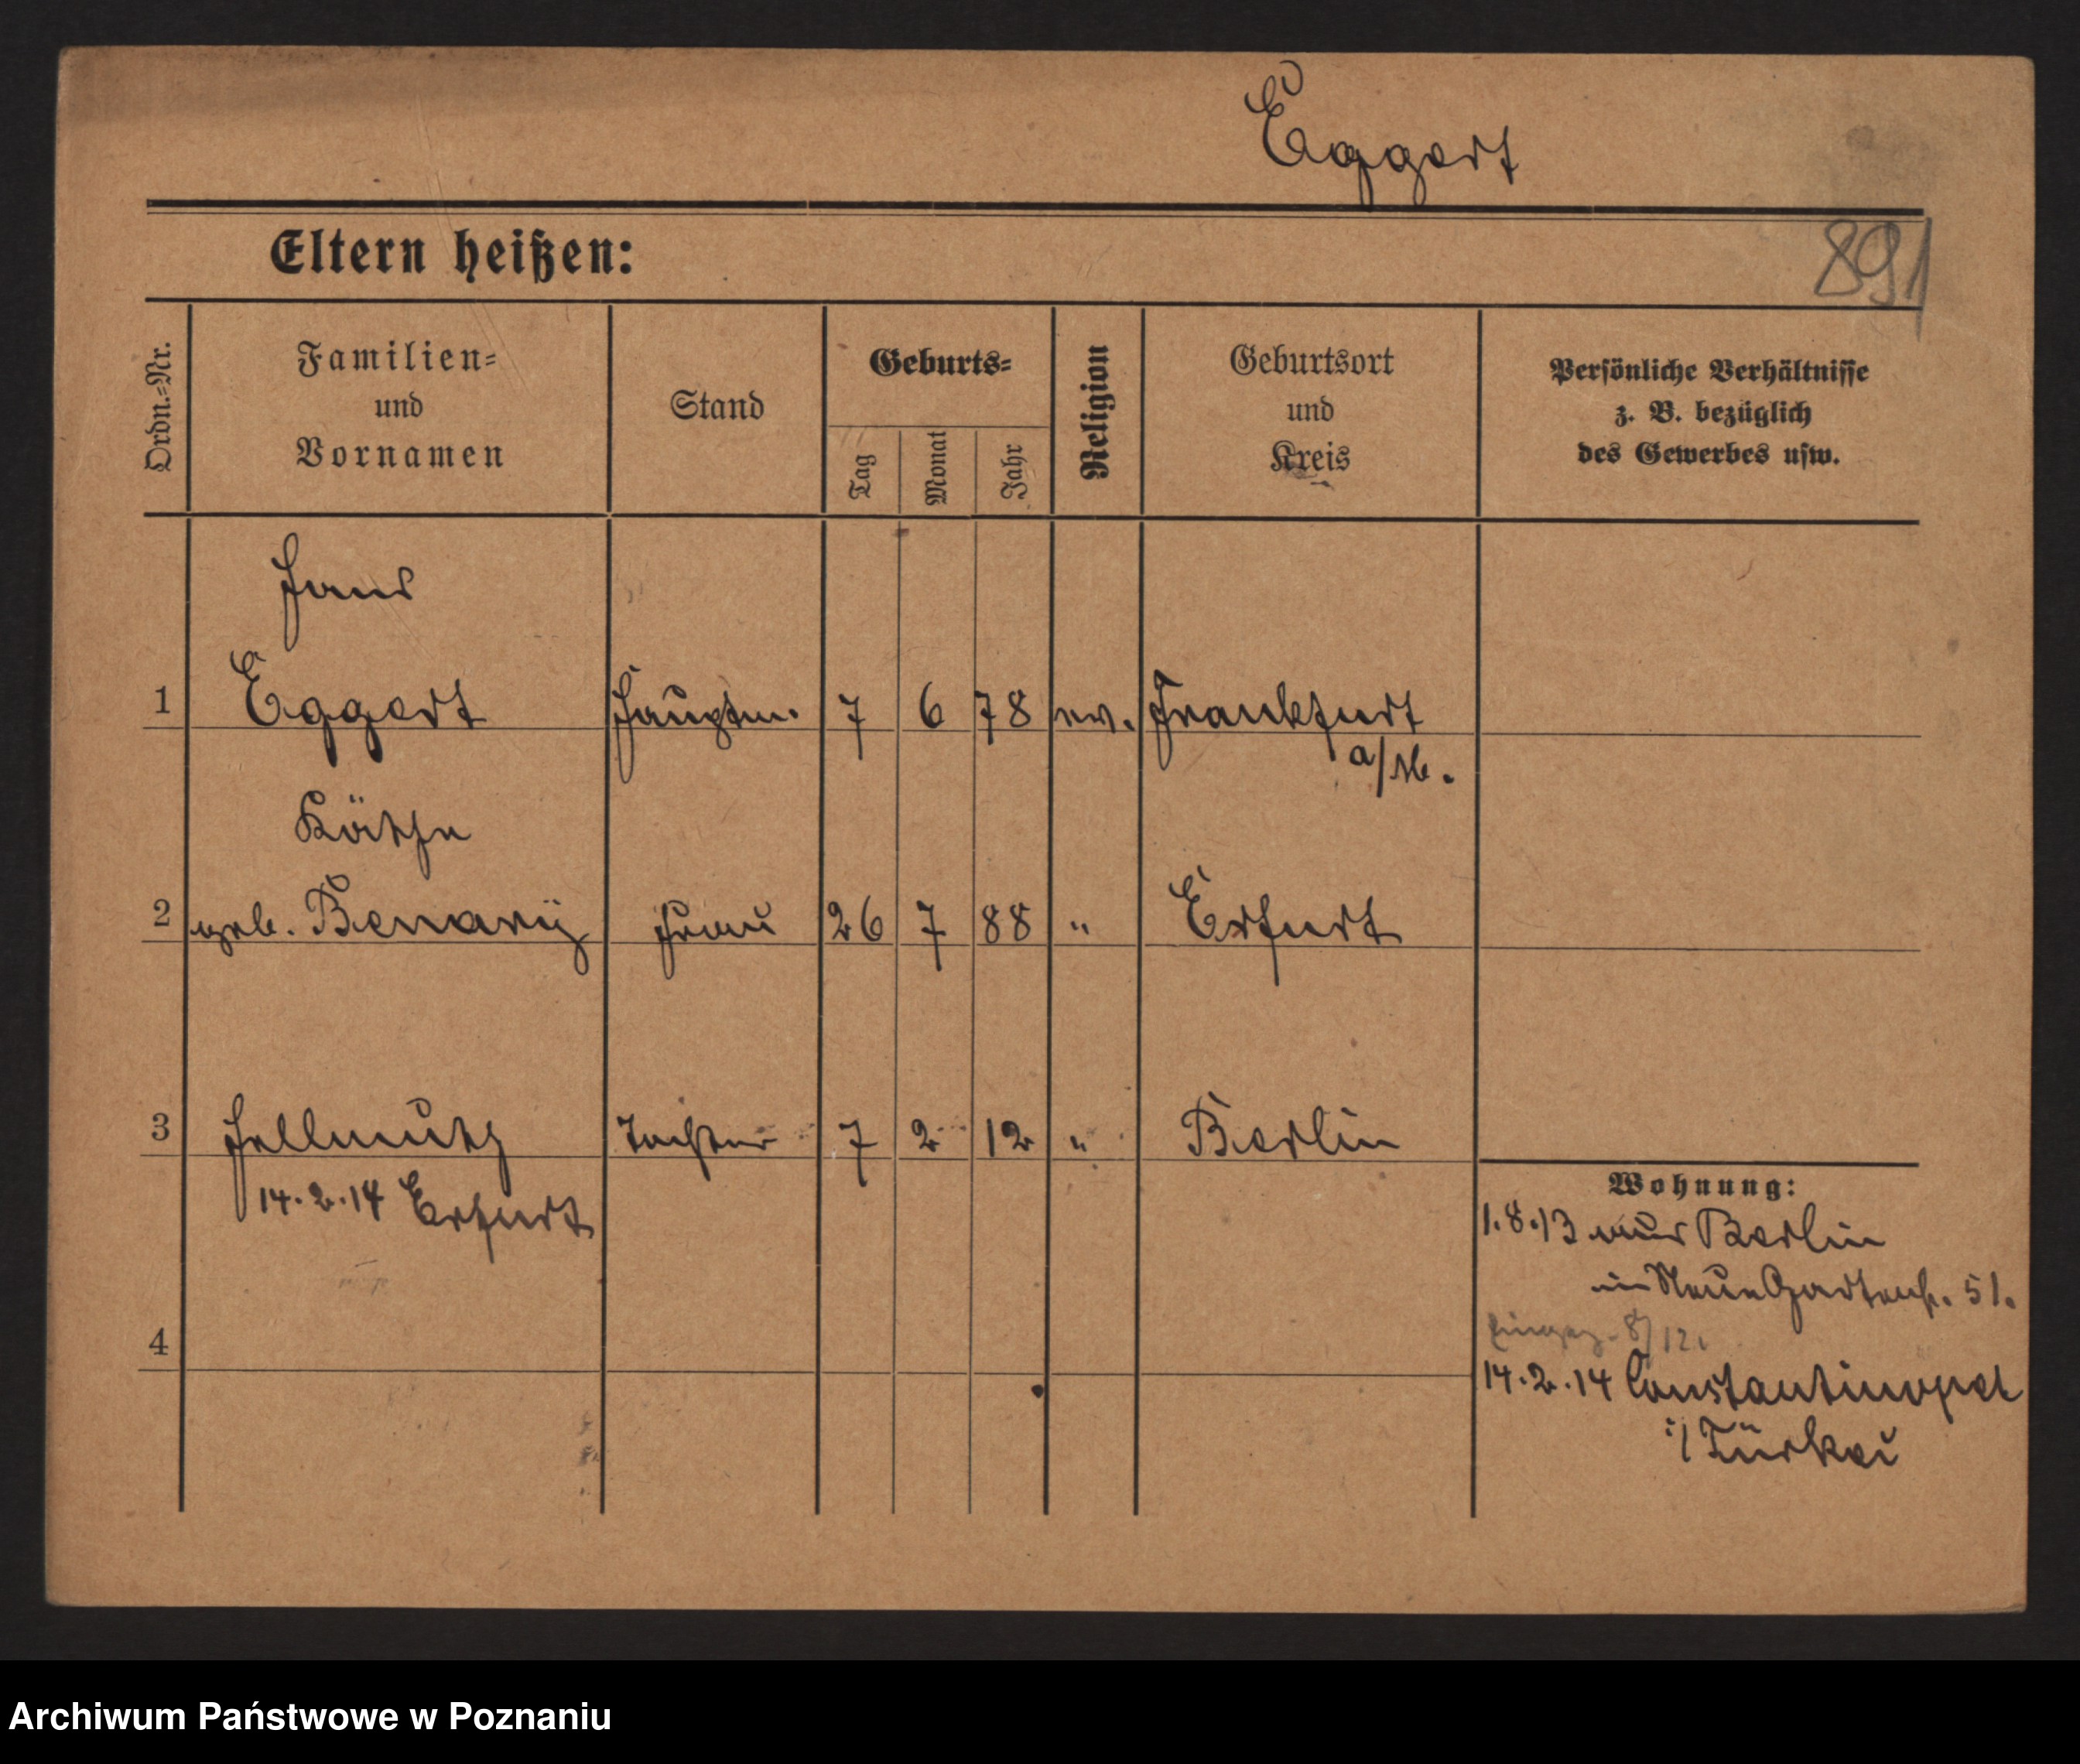 Eggert
Eltern heißen:
891
Ordn.=Nr.
Familien=
und
Vornamen
Stand
Geburts=
Tag
Monat
Jahr
Religion
Geburtsort
und
Kreis
Persönliche Verhältnisse
z. B. bezüglich
des Gewerbes usw.
Hans
1 Eggert Hauptm. 7 6 78 ev. Frankfurt
a/M.
Käthe
2 geb. Benary Frau 26 7 88 " Erfurt
3 Hellmuth Tochter 7 2 12 " Berlin
14.2.14 Erfurt
Wohnung:
1.8.13 aus Berlin
in Neue Gartenstr. 51.
8/12.
4
14.2.14 Constantinopel
i/ Türkei
Archiwum Państwowe w Poznaniu